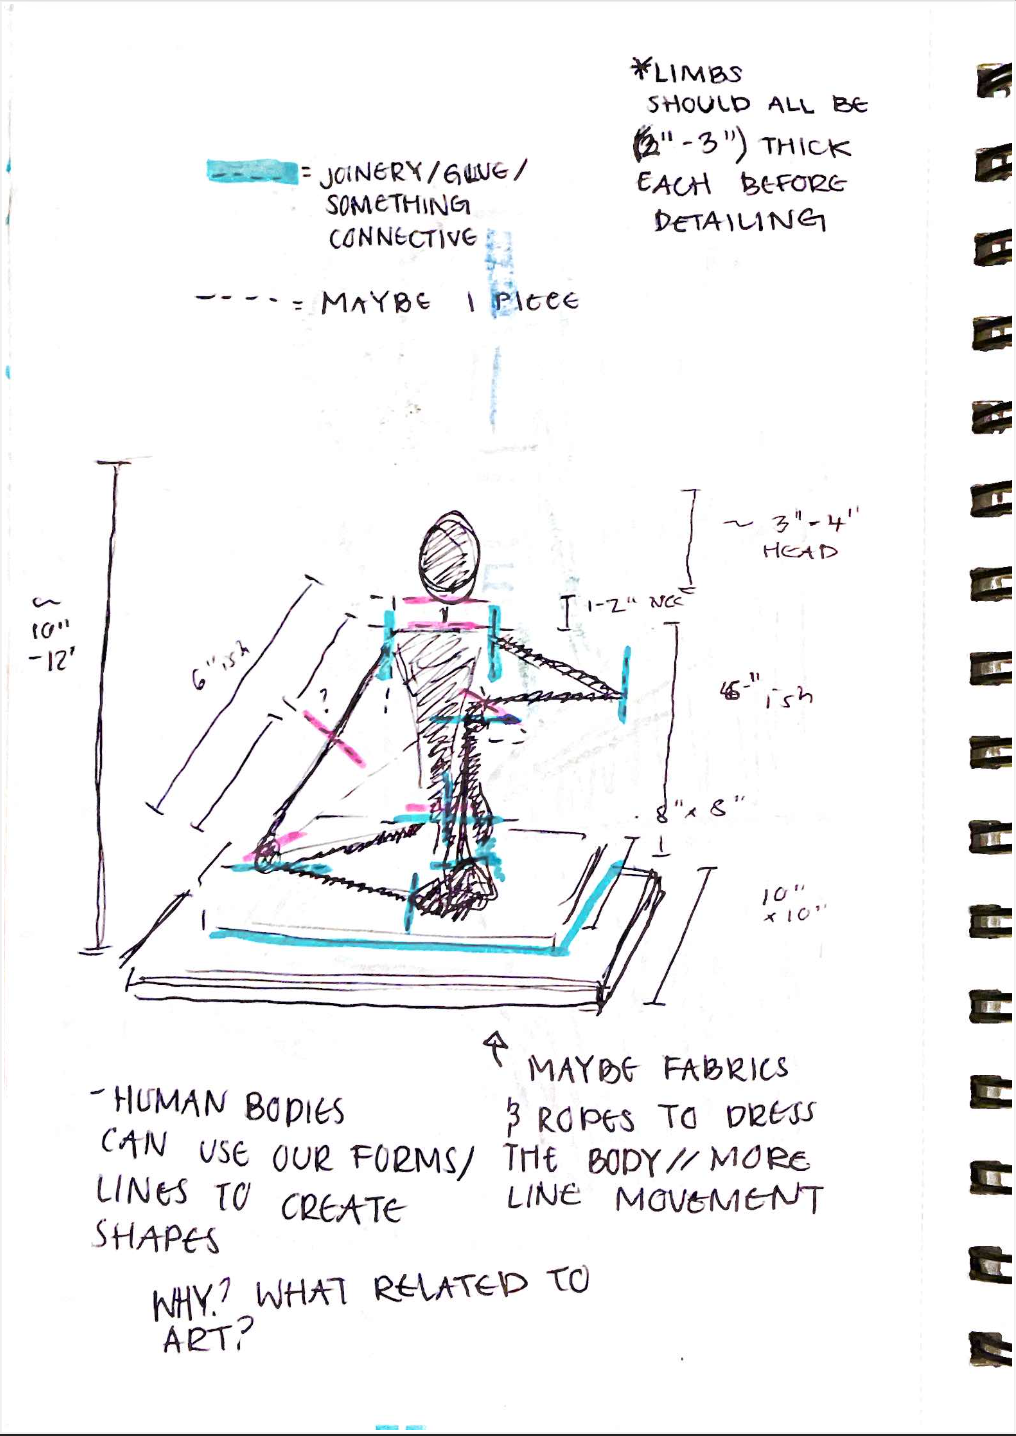 *LIMBS
SHOULD ALL BE
(2"-3") THICK
EACH BEFORE
DETAILING
= JOINERY/GLUE/
SOMETHING
CONNECTIVE
---- = MAYBE 1 PIECE
~ 3"-4"
HEAD
1-2" NEC
~
10"
-12'
6"ish
?
6-"ish
8"x8"
10"
x10"
↑ MAYBE FABRICS
& ROPES TO DRESS
THE BODY//MORE
LINE MOVEMENT
-HUMAN BODIES
CAN USE OUR FORMS/
LINES TO CREATE
SHAPES
WHY? WHAT RELATED TO
ART?